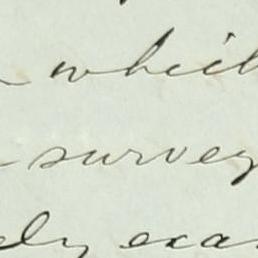 which
survey
ly exa